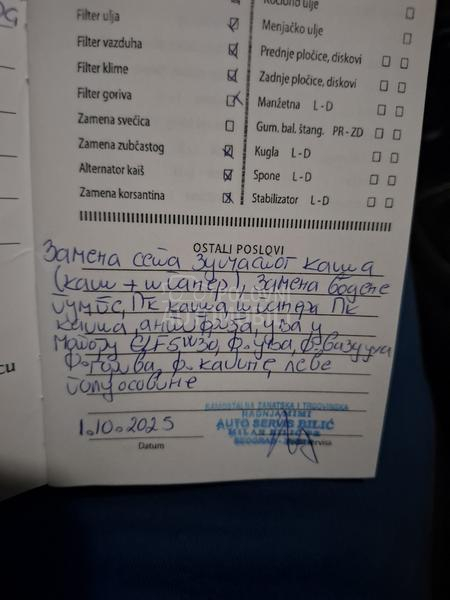 Filter ulja
Filter vazduha
Filter klime
Filter goriva
Zamena svećica
Zamena zubčastog
Alternator kaiš
Zamena korsantina
Kočiono ulje
Menjačko ulje
Prednje pločice, diskovi
Zadnje pločice, diskovi
Manžetna L - D
Gum. bal. štang. PR - ZD
Kugla L - D
Spone L - D
Stabilizator L - D
OSTALI POSLOVI
Замена сета зупчастог каиша
(каиш + шпанер), Замена водене
пумпе, Пк каиша и шпанера Пк
каиша, антифриза, уља у
мотору ELF 5W30, ф. уља, ф. ваздуха
ф. горива, ф. кабине, леве
полуосовине
1.10.2025
Datum
SAMOSTALNA ZANATSKA I TRGOVINSKA
RADNJA MIMI
AUTO SERVIS BILIĆ
MILAN BILIĆ PR
BEOGRAD